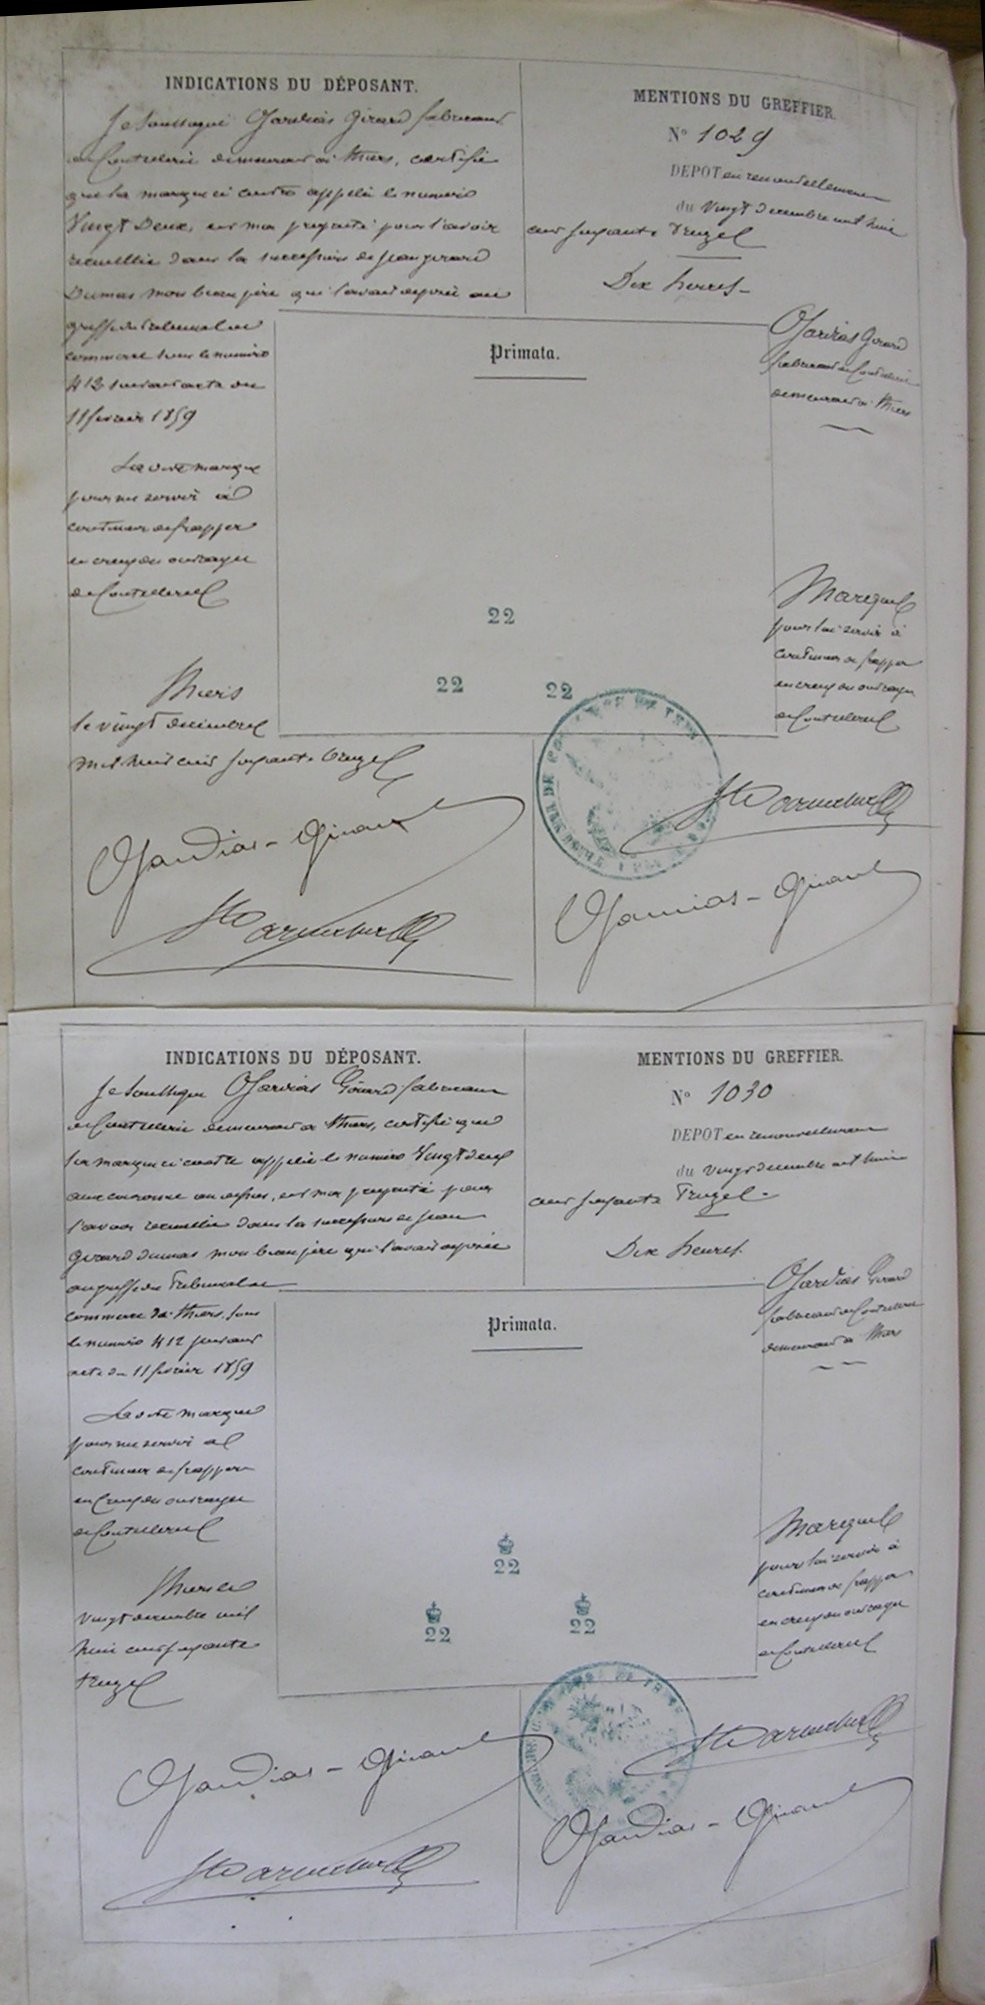 INDICATIONS DU DÉPOSANT.
Je soussigné Gardias Girard fabricant
en Coutellerie demeurant à Thiers, certifie
que la marque ci contre appellée le numéro
Vingt Deux, est ma propriété pour l'avoir
recueillie dans la succession de Jean girard
Dumas mon beau père qui l'avait déposée au
greffe du tribunal de
commerce sous le numéro
413 suivant acte du
11 février 1859
La dite marque
pour me servir à
continuer de frapper
en creux des ouvrages
de Coutellerie
Thiers
le vingt décembre
mil huit cent soixante treize
Gardias-Girard
MENTIONS DU GREFFIER.
N° 1029
DEPOT en renouvellement
du vingt décembre mil huit
cent soixante treize
Dix heures
Primata.
Gardias Girard
fabricant de Coutellerie
demeurant à Thiers
Marque
pour lui servir à
continuer de frapper
en creux des ouvrages
de Coutellerie
22
22 22
Gardias-Girard
INDICATIONS DU DÉPOSANT.
Je soussigné Gardias Girard fabricant
de Coutellerie demeurant à Thiers, certifie que
la marque ci contre appellée le numéro Vingt deux
une couronne au dessus, est ma propriété pour
l'avoir recueillie dans la succession de Jean
Girard dumas mon beau père qui l'avait déposée
au greffe du Tribunal de
commerce de Thiers, sous
le numéro 412 suivant
acte du 11 février 1859
La dite marque
pour me servir à
continuer de frapper
en creux des ouvrages
de Coutellerie
Thiers le
vingt décembre mil
huit cent soixante
treize
Gardias-Girard
MENTIONS DU GREFFIER.
N° 1030
DEPOT en renouvellement
du vingt décembre mil huit
cent soixante Treize
Dix heures
Primata.
Gardias Girard
fabricant de Coutellerie
demeurant à Thiers
Marque
pour lui servir à
continuer de frapper
en creux des ouvrages
de Coutellerie
22
22 22
Gardias-Girard